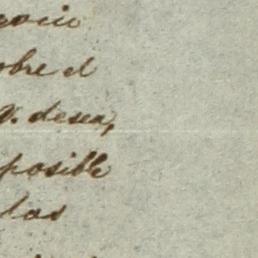 obre el
V. desea,
posible
las